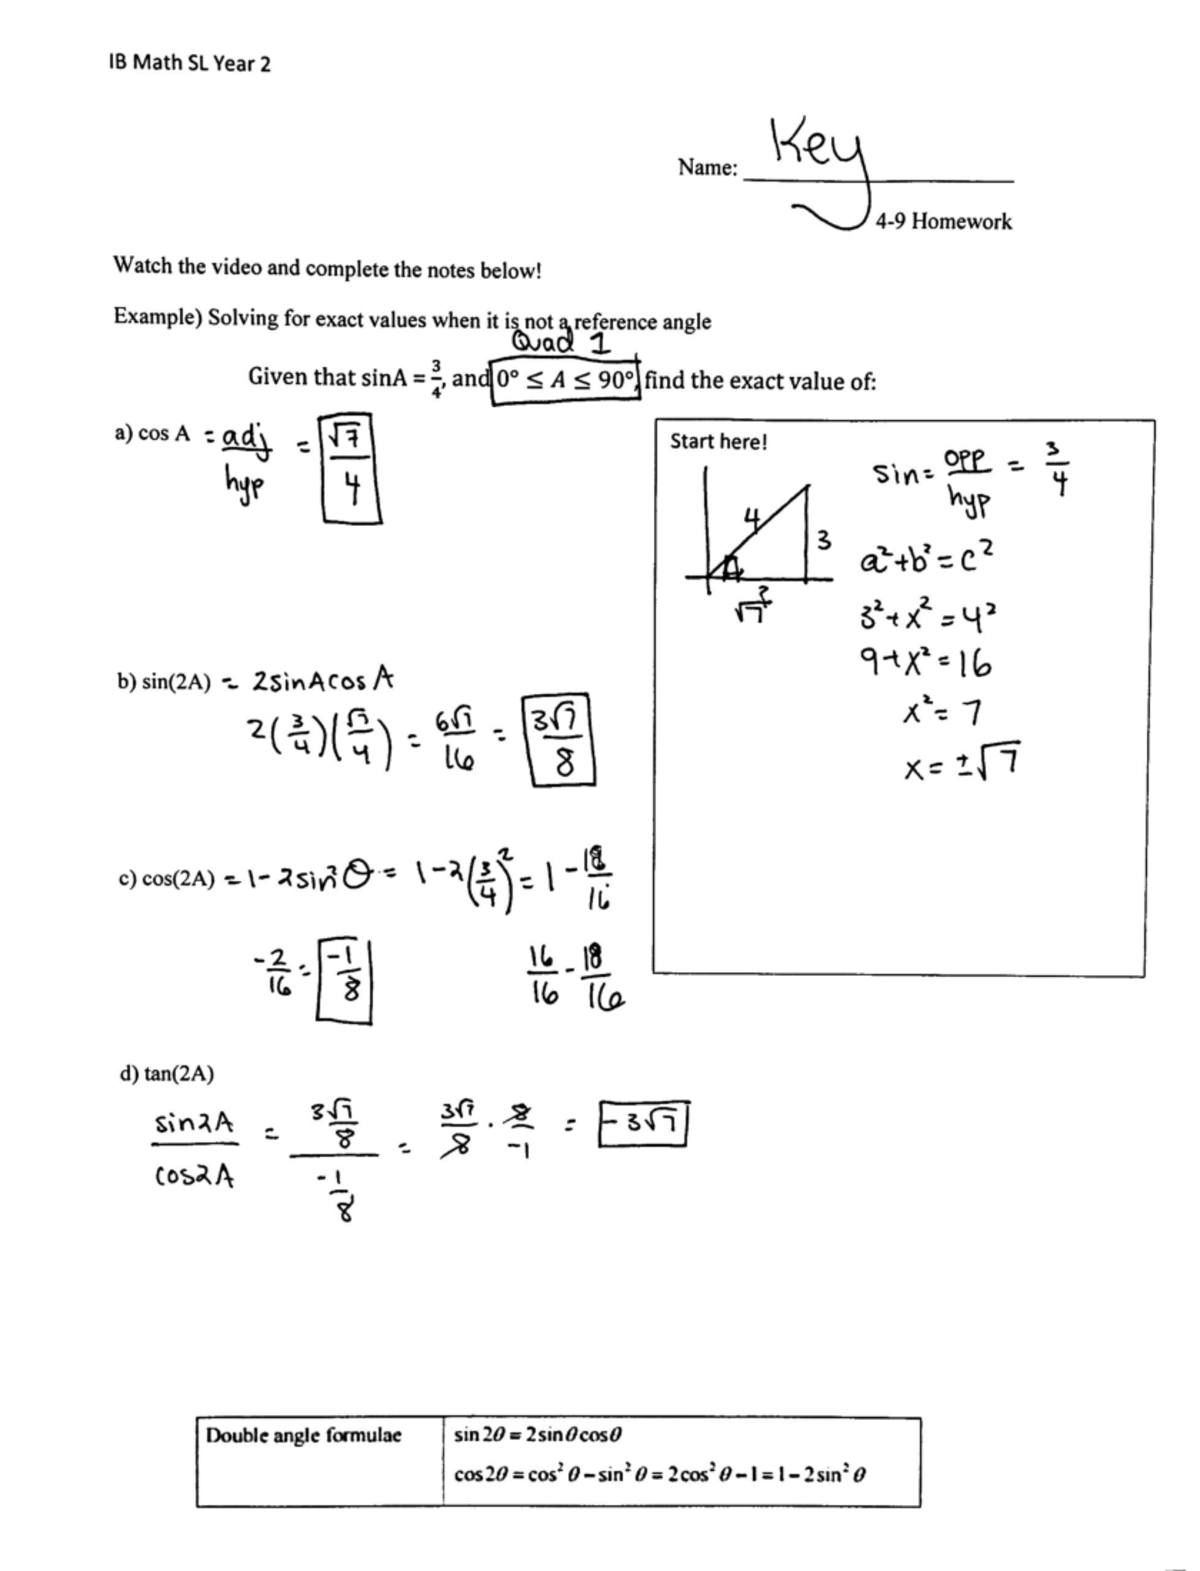 IB Math SL Year 2
Name: Key
4-9 Homework
Watch the video and complete the notes below!
Example) Solving for exact values when it is not a reference angle
Quad 1
Given that sinA = 3/4, and 0° ≤ A ≤ 90°, find the exact value of:
a) cos A = adj/hyp = √7/4
Start here!
sin = opp/hyp = 3/4
4
3
A
?
√7
a²+b²=c²
3²+x²=4²
9+x²=16
x²=7
x=±√7
b) sin(2A) = 2sinAcosA
2(3/4)(√7/4) = 6√7/16 = 3√7/8
c) cos(2A) = 1-2sin²θ = 1-2(3/4)² = 1-18/16
-2/16 = -1/8
16/16 - 18/16
d) tan(2A)
sin2A/cos2A = (3√7/8)/(-1/8) = 3√7/8 · 8/-1 = -3√7
Double angle formulae
sin 2θ = 2 sin θ cos θ
cos 2θ = cos² θ – sin² θ = 2 cos² θ – 1 = 1 – 2 sin² θ